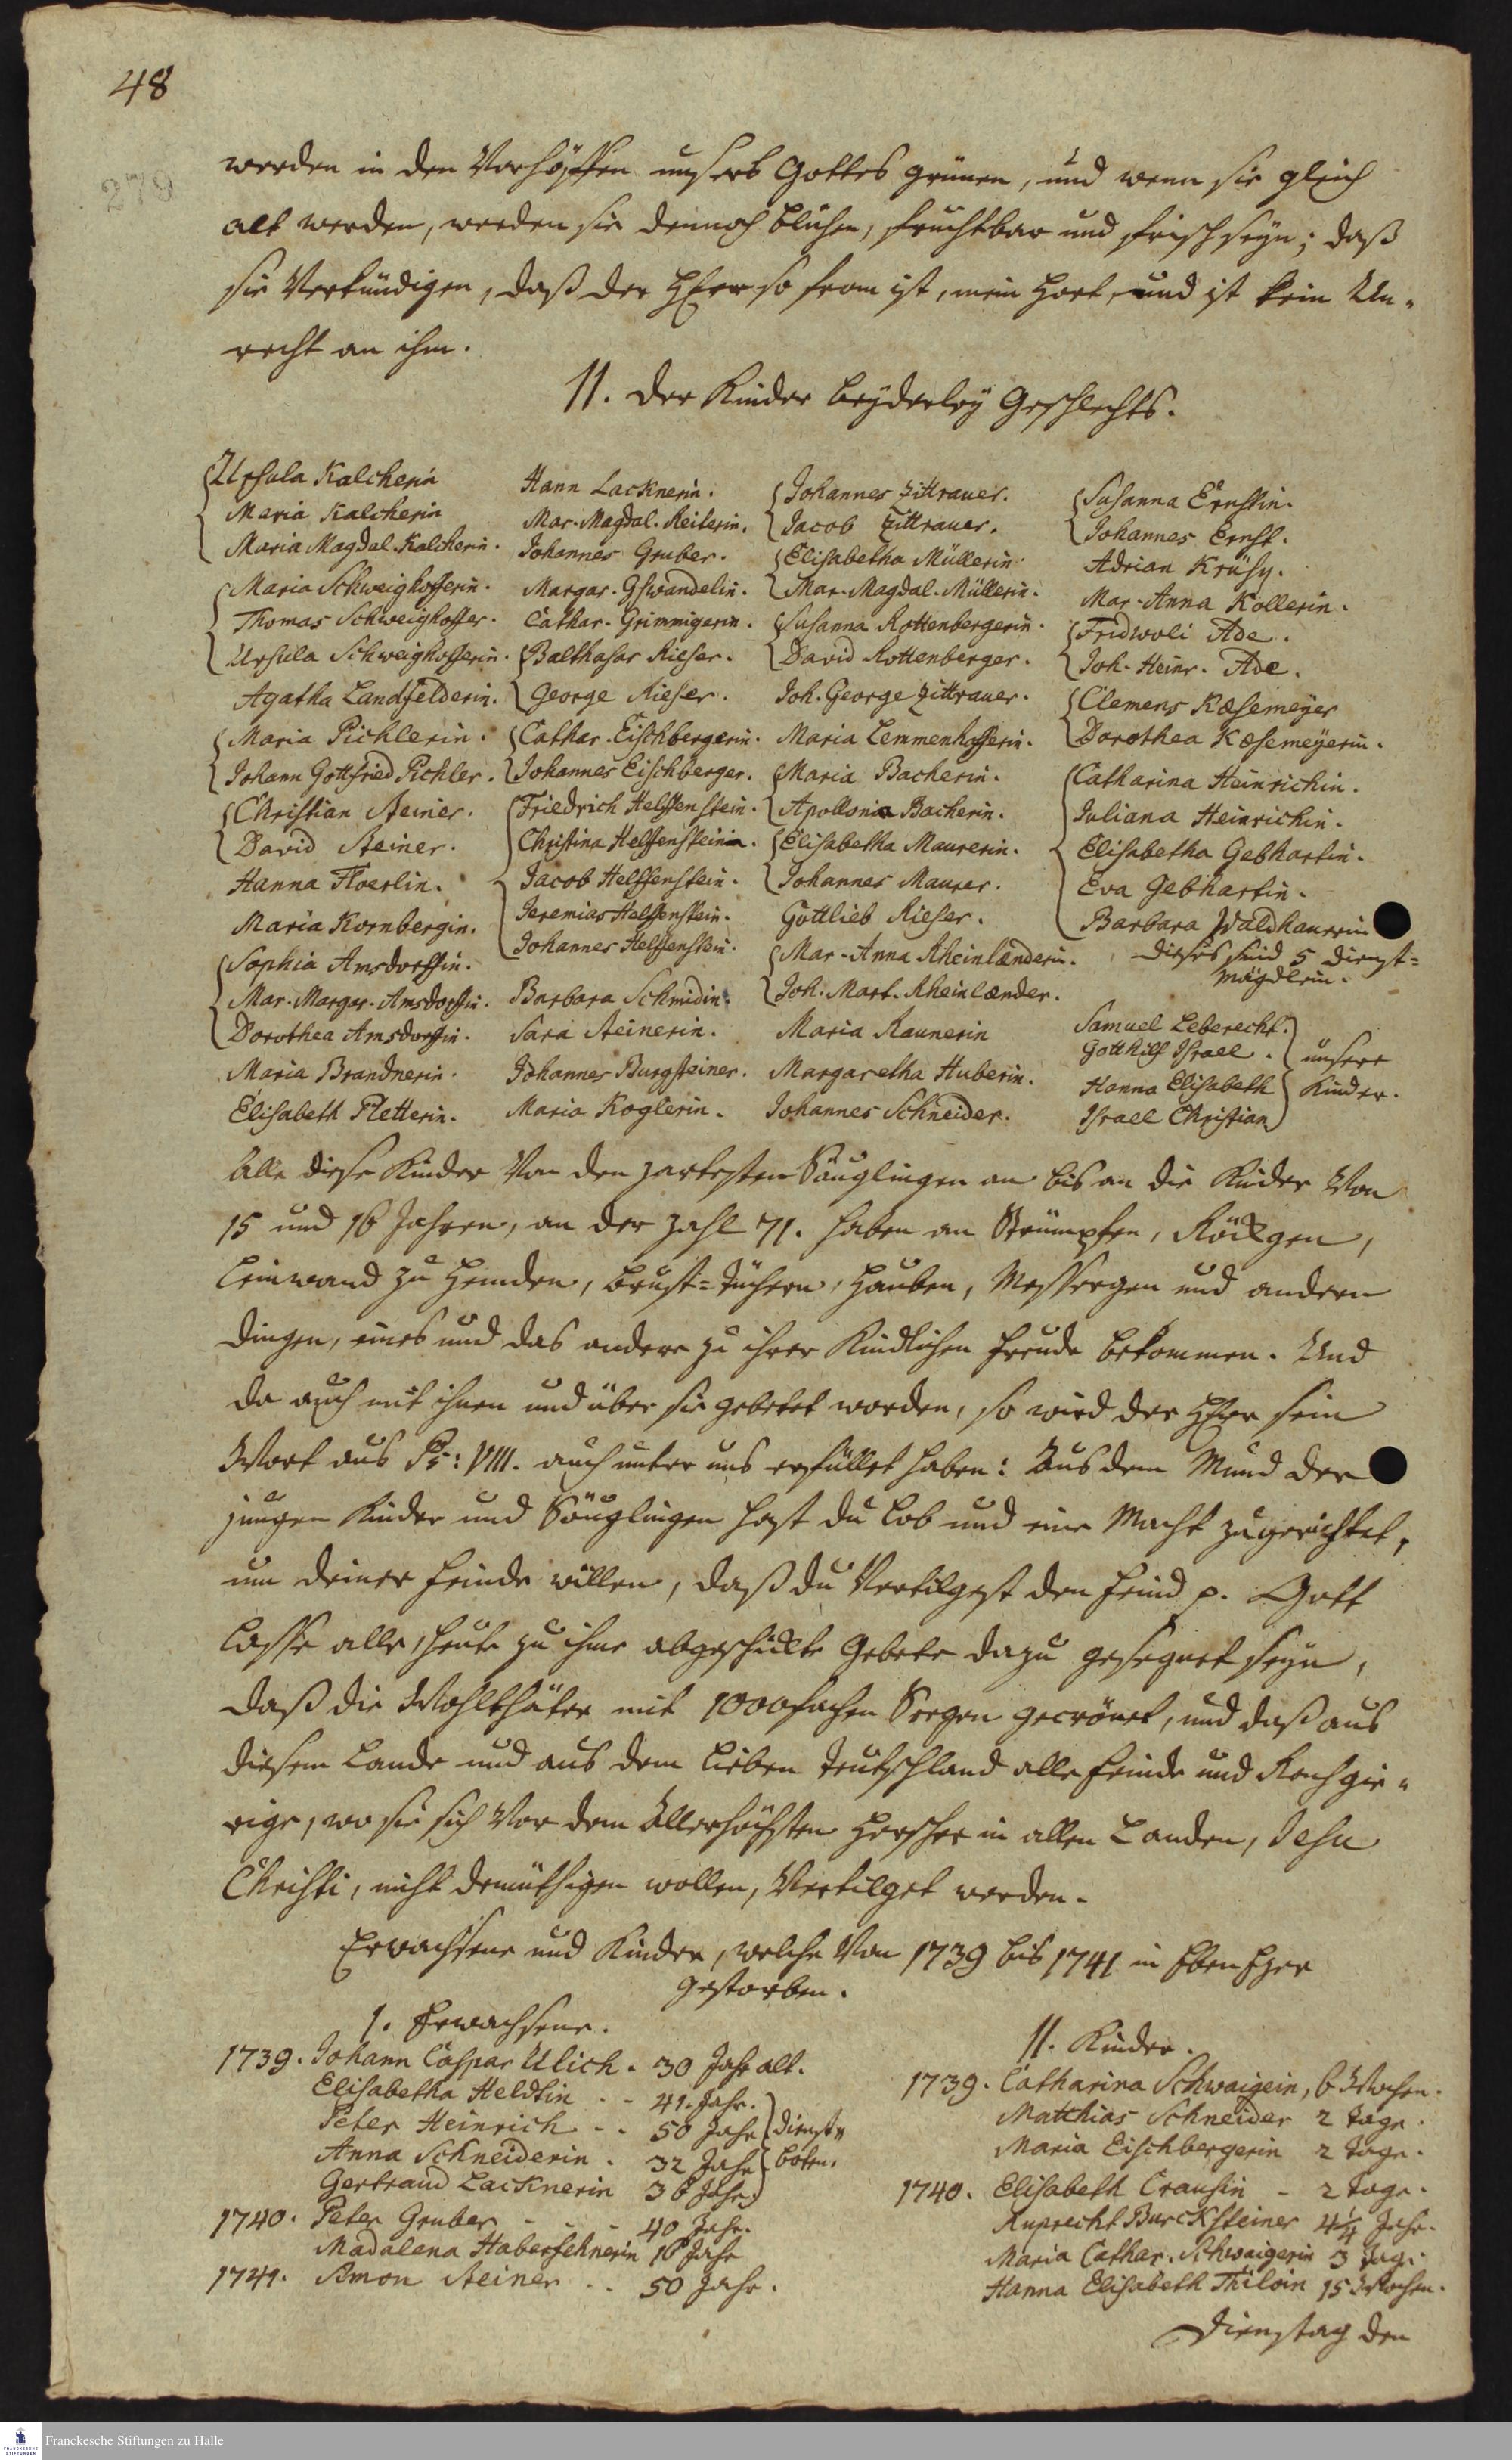 48
279
werden in den Vorhöffen unsers Gottes grünen, und wenn sie gleich
alt werden, werden sie dennoch blühen, fruchtbar und frisch seyn; daß
sie verkündigen, daß der HErr so from ist, mein Hort, und ist kein Un-
recht an ihm.
II. Der Kinder beyderley Geschlechts.
Ursula Kalcherin
Maria Kalcherin
Maria Magdal. Kalcherin.
Maria Schweighofferin.
Thomas Schweighoffer.
Ursula Schweighofferin.
Agatha Landfelderin.
Maria Pichlerin.
Johann Gottfried Pichler.
Christian Steiner.
David Steiner.
Hanna Floerlin.
Maria Kornbergin.
Sophia Amsdorffin.
Mar. Margar. Amsdorffin.
Dorothea Amsdorffin.
Maria Brandnerin.
Elisabeth Pletterin.
Hann Lacknerin.
Mar. Magdal. Reiterin.
Johannes Gruber.
Margar. Gswandelin.
Cathar. Grimmigerin.
Balthasar Rieser.
George Rieser.
Cathar. Eischbergerin.
Johannes Eischberger.
Friedrich Helffenstein.
Christina Helffensteinin.
Jacob Helffenstein.
Jeremias Helffenstein.
Johannes Helffenstein.
Barbara Schmidin.
Sara Steinerin.
Johannes Burgsteiner.
Maria Koglerin.
Johannes Zittrauer.
Jacob Zittrauer.
Elisabetha Müllerin.
Mar. Magdal. Müllerin.
Susanna Rottenbergerin.
David Rottenberger.
Joh. George Zittrauer.
Maria Lemmenhofferin.
Maria Bacherin.
Apollonia Bacherin.
Elisabetha Maurerin.
Johannes Maurer.
Gottlieb Rieser.
Mar. Anna Rheinlænderin.
Joh. Mart. Rheinlænder.
Maria Raunerin
Margaretha Huberin.
Johannes Schneider.
Susanna Ernstin.
Johannes Ernst.
Adrian Kräsy.
Mar. Anna Kollerin.
Fridwoli Ade.
Joh. Heinr. Ade.
Clemens Kæsemeyer
Dorothea Kæsemeyerin.
Catharina Heinrichin.
Juliana Heinrichin.
Elisabetha Gebhartin.
Eva Gebhartin.
Barbara Waldhauerin
Dieses sind 5 Dienst=
Mägdlein.
Samuel Leberecht.
Gotthilf Israel.
Hanna Elisabeth
Israel Christian
unsere
Kinder.
Alle diese Kinder von den zartesten Säuglingen an bis an die Kinder von
15 und 16 Jahren, an der Zahl 71. haben an Strümpfen, Röckgen,
Leinwand zu Hemden, Brust=Tüchern, Hauben, Messergen und andern
Dingen, eines und das andere zu ihrer Kindlichen Freude bekommen. Und
da auch mit ihnen und über sie gebetet worden, so wird der HErr sein
Wort aus Ps: VIII. auch unter uns erfüllet haben: Aus dem Mund der
jungen Kinder und Säuglingen hast du Lob und eine Macht zugerichtet,
um deiner Feinde willen, daß du vertilgest den Feind p. Gott
lasse alle, heute zu ihme abgeschickte Gebete dazu gesegnet seyn,
daß die Wohlthäter mit 1000fachen Seegen gecrönet, und daß aus
diesem Lande und aus dem lieben Teutschland alle Feinde und Rachgie-
rige, wo sie sich vor dem Allerhöchsten Herscher in allen Landen, Jesu
Christi, nicht demüthigen wollen, vertilget werden.
Erwachsene und Kinder, welche von 1739 bis 1741 in EbenEzer
gestorben.
I. Erwachsene.
1739. Johann Caspar Ulich. 30 Jahr alt.
Elisabetha Heldtin - - 41. Jahr.
Peter Heinrich - - 50 Jahr
Anna Schneiderin. 32 Jahr
Gertraud Lacknerin 36 Jahr
Dienst=
boten.
1740. Peter Gruber - - - 40 Jahr.
Madalena Haberfehnerin 16 Jahr
1741. Simon Steiner - - 50 Jahr.
II. Kinder.
1739. Catharina Schwaigein, 6 Wochen.
Matthias Schneider 2 Tage.
Maria Eischbergerin 2 Tage.
1740. Elisabeth Crausin - 2 Tage.
Ruprecht Burcksteiner 4¼ Jahr.
Maria Cathar. Schwaigerin 3 Tag.
Hanna Elisabeth Thiloin 15 Wochen.
Dienstag den
FRANCKESCHE
STIFTUNGEN
Franckesche Stiftungen zu Halle